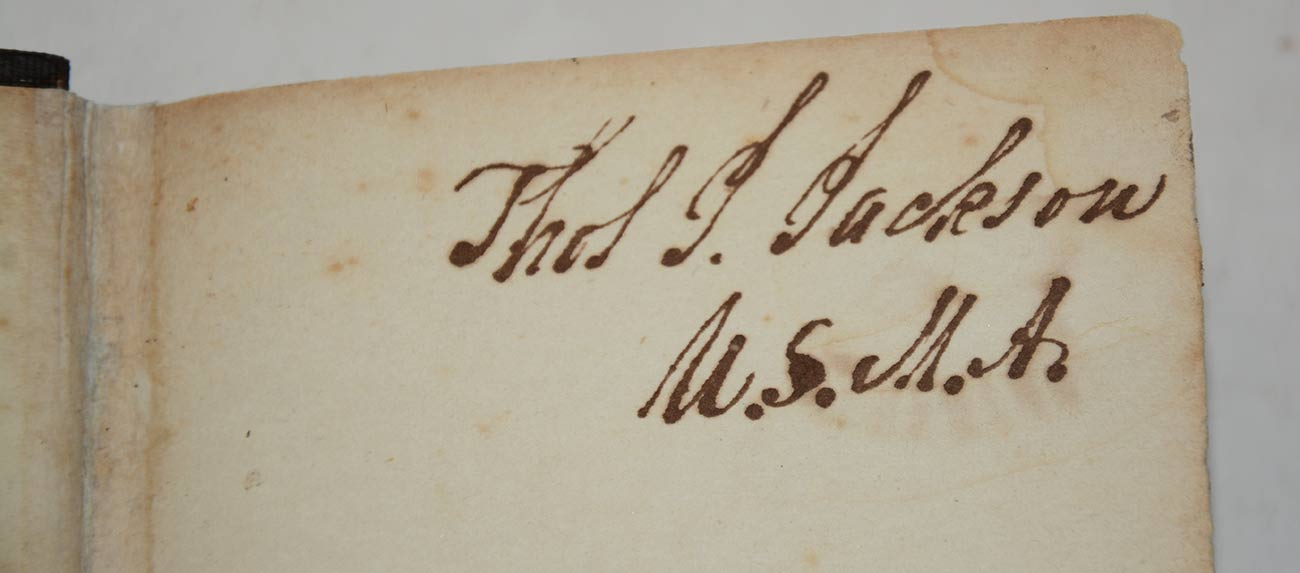 Thos J. Jackson
U.S.M.A.